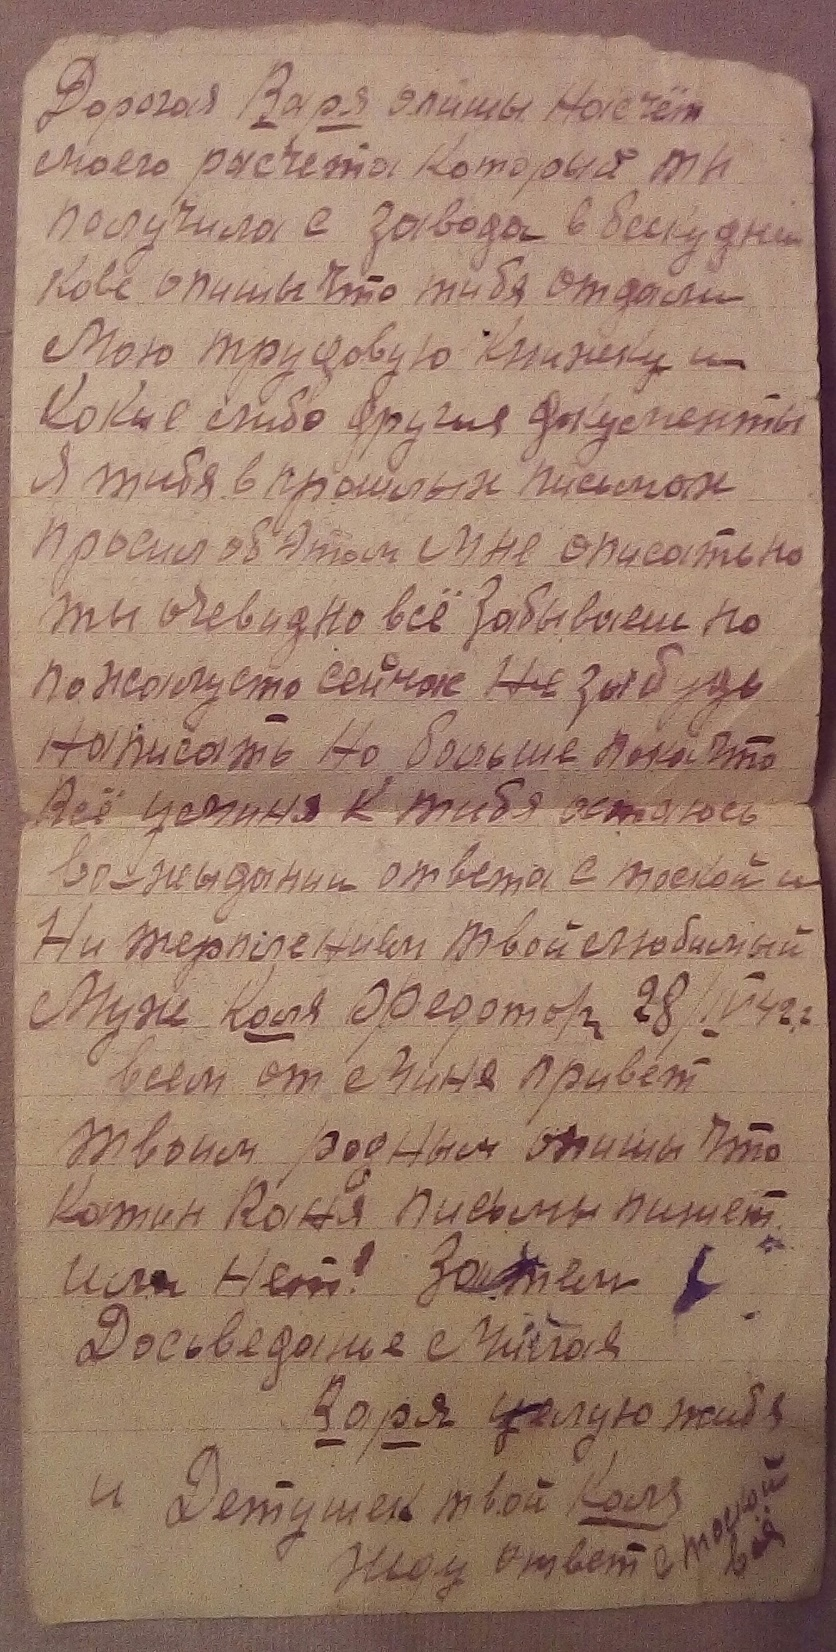 Дорогая Варя опишы насчёт
моего расчета который ты
получила с завода в бескудни
кове опишы что тибя отдали
мою трудовую книжку и
Кокие либо другия документы
Я тибя в прошлых письмах
просил об этом мне описать но
ты очевидно всё забываеш но
пожалусто сейчас не забудь
написать но больше пока что
всё уминя к тибя остаюсь
во ожыдании ответа с тоской и
Ни терпением твой любимый
Муж Коля Федотов 28/IV 42 г
всем от миня привет
твоим родным опишы что
Катин Ваня письмы пишет
или нет! Затем
Досьведанье милая
Варя целую тибя
и Детушек твой Коля
жду ответ с тоской
всё